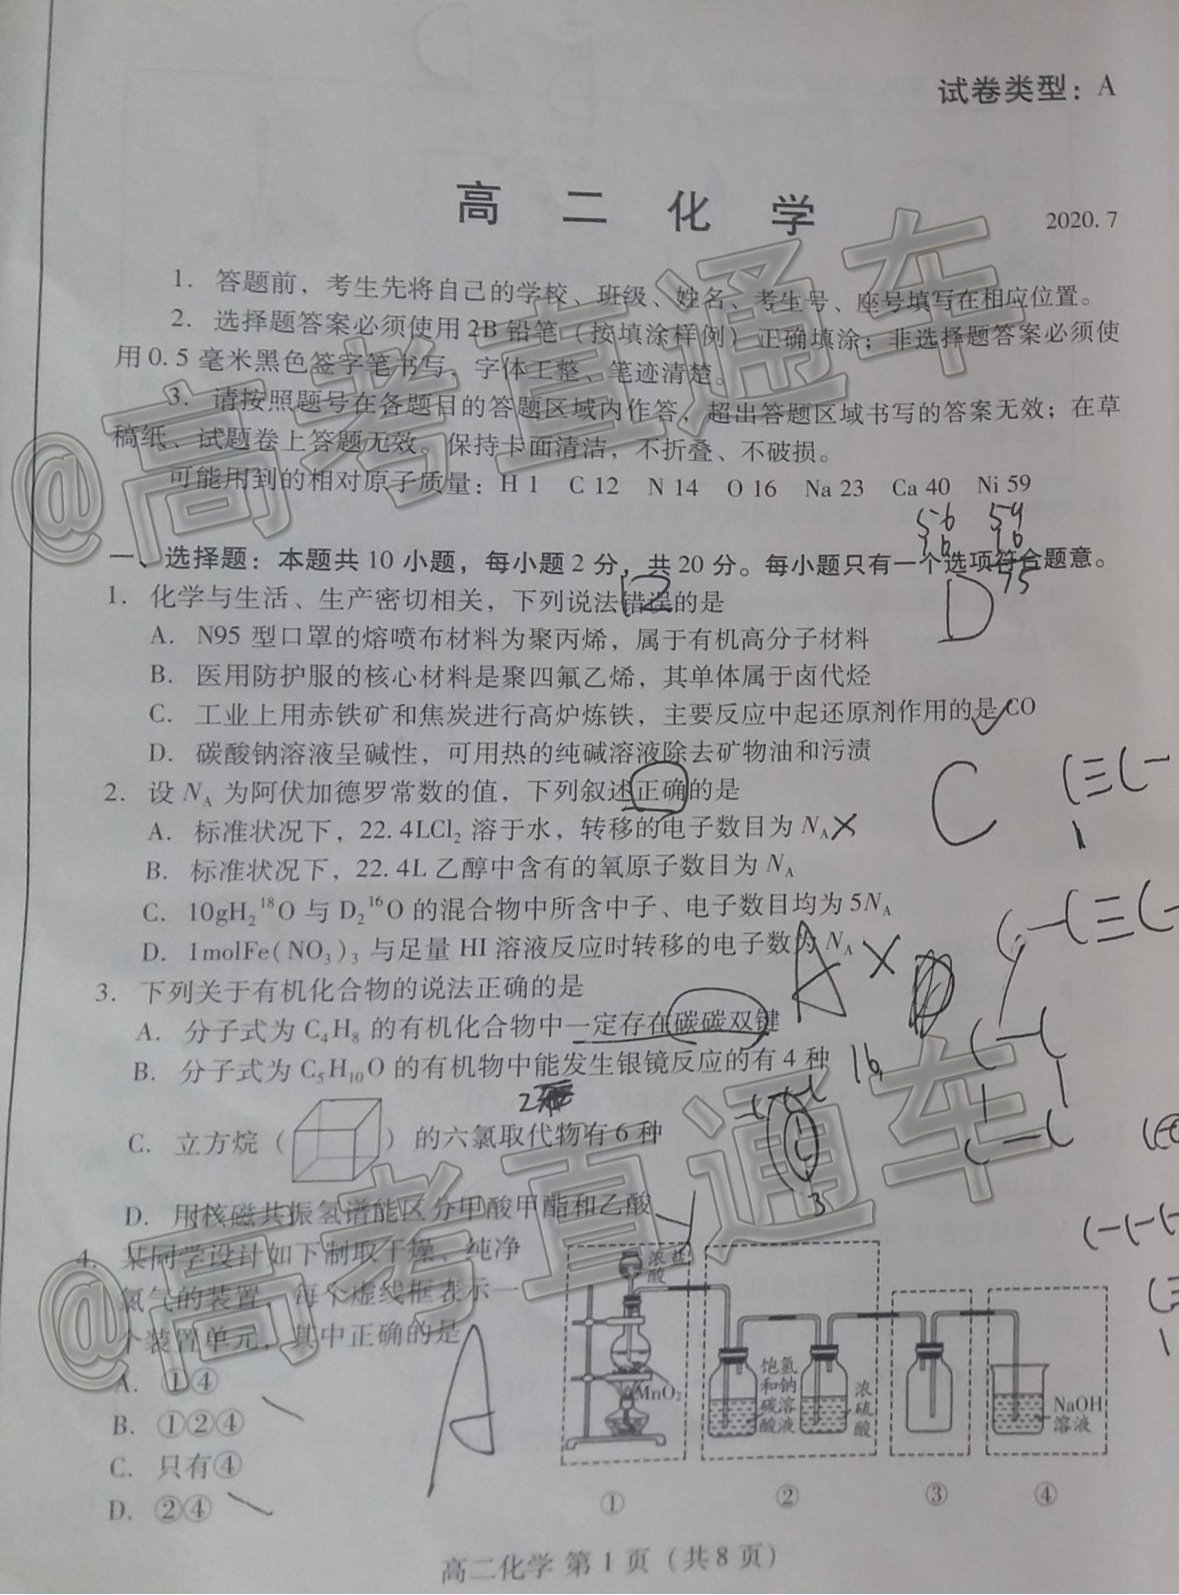 试卷类型：A
高 二 化 学
2020.7
1. 答题前，考生先将自己的学校、班级、姓名、考生号、座号填写在相应位置。
2. 选择题答案必须使用2B铅笔（按填涂样例）正确填涂；非选择题答案必须使
用0.5毫米黑色签字笔书写，字体工整、笔迹清楚。
3. 请按照题号在各题目的答题区域内作答，超出答题区域书写的答案无效；在草
稿纸、试题卷上答题无效。保持卡面清洁，不折叠、不破损。
可能用到的相对原子质量：H 1 C 12 N 14 O 16 Na 23 Ca 40 Ni 59
56 59
16 16
75
一、选择题：本题共10小题，每小题2分，共20分。每小题只有一个选项符合题意。
1. 化学与生活、生产密切相关，下列说法错误的是
D
A. N95型口罩的熔喷布材料为聚丙烯，属于有机高分子材料
B. 医用防护服的核心材料是聚四氟乙烯，其单体属于卤代烃
C. 工业上用赤铁矿和焦炭进行高炉炼铁，主要反应中起还原剂作用的是CO
D. 碳酸钠溶液呈碱性，可用热的纯碱溶液除去矿物油和污渍
2. 设NA为阿伏加德罗常数的值，下列叙述正确的是
C
A. 标准状况下，22.4LCl₂溶于水，转移的电子数目为NA
B. 标准状况下，22.4L乙醇中含有的氧原子数目为NA
C. 10gH₂¹⁸O与D₂¹⁶O的混合物中所含中子、电子数目均为5NA
D. 1molFe(NO₃)₃与足量HI溶液反应时转移的电子数为NA
A
3. 下列关于有机化合物的说法正确的是
A. 分子式为C₄H₈的有机化合物中一定存在碳碳双键
B. 分子式为C₅H₁₀O的有机物中能发生银镜反应的有4种
16
C. 立方烷（ ）的六氯取代物有6种
3
D. 用核磁共振氢谱能区分甲酸甲酯和乙酸
4. 某同学设计如下制取干燥、纯净
氯气的装置，每个虚线框表示一
个装置单元，其中正确的是
A. ①④
B. ①②④
C. 只有④
D. ②④
A
浓盐酸
MnO₂
饱和碳酸氢钠溶液
浓硫酸
NaOH
溶液
① ② ③ ④
高二化学 第1页（共8页）
@高考直通车
@高考直通车